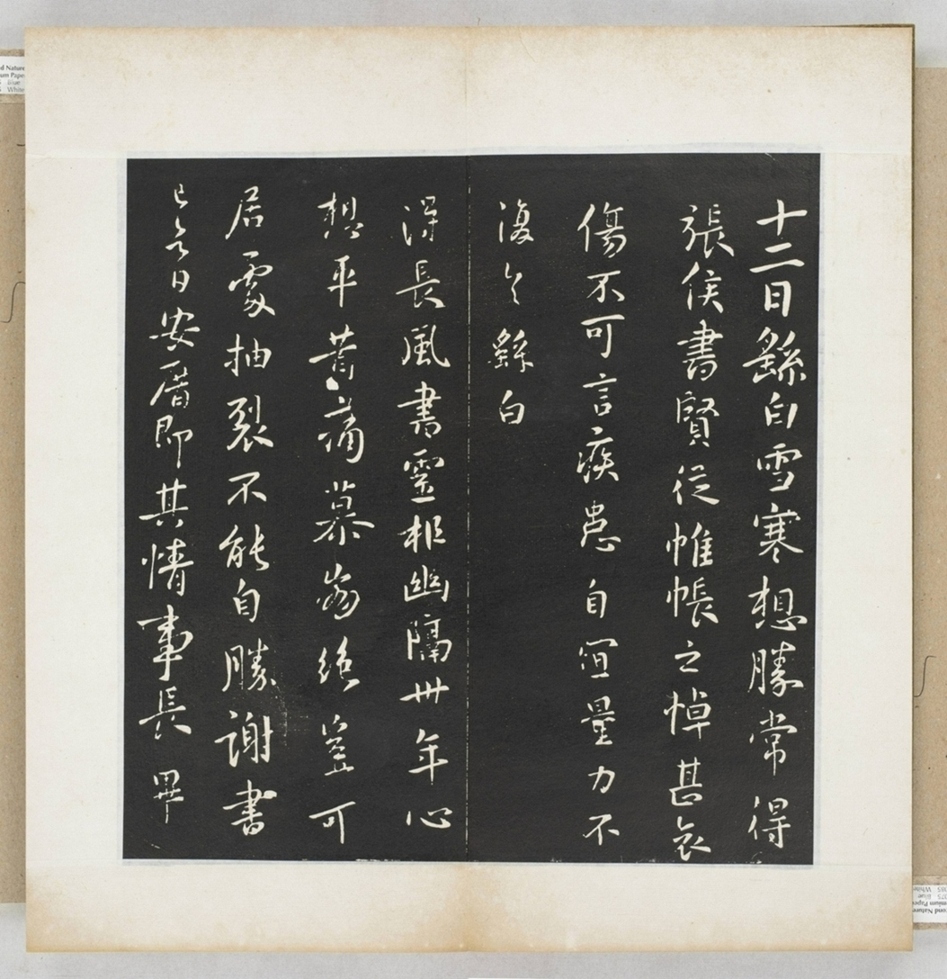 十二日繇白雪寒想勝常得
張侯書賢從帷帳之悼甚哀
傷不可言疾患自宜量力不
復具繇白
得長風書靈柩幽隔卅年心
想平昔痛慕崩絕豈可
居處抽裂不能自勝謝書
已具日安厝即其情事長畢